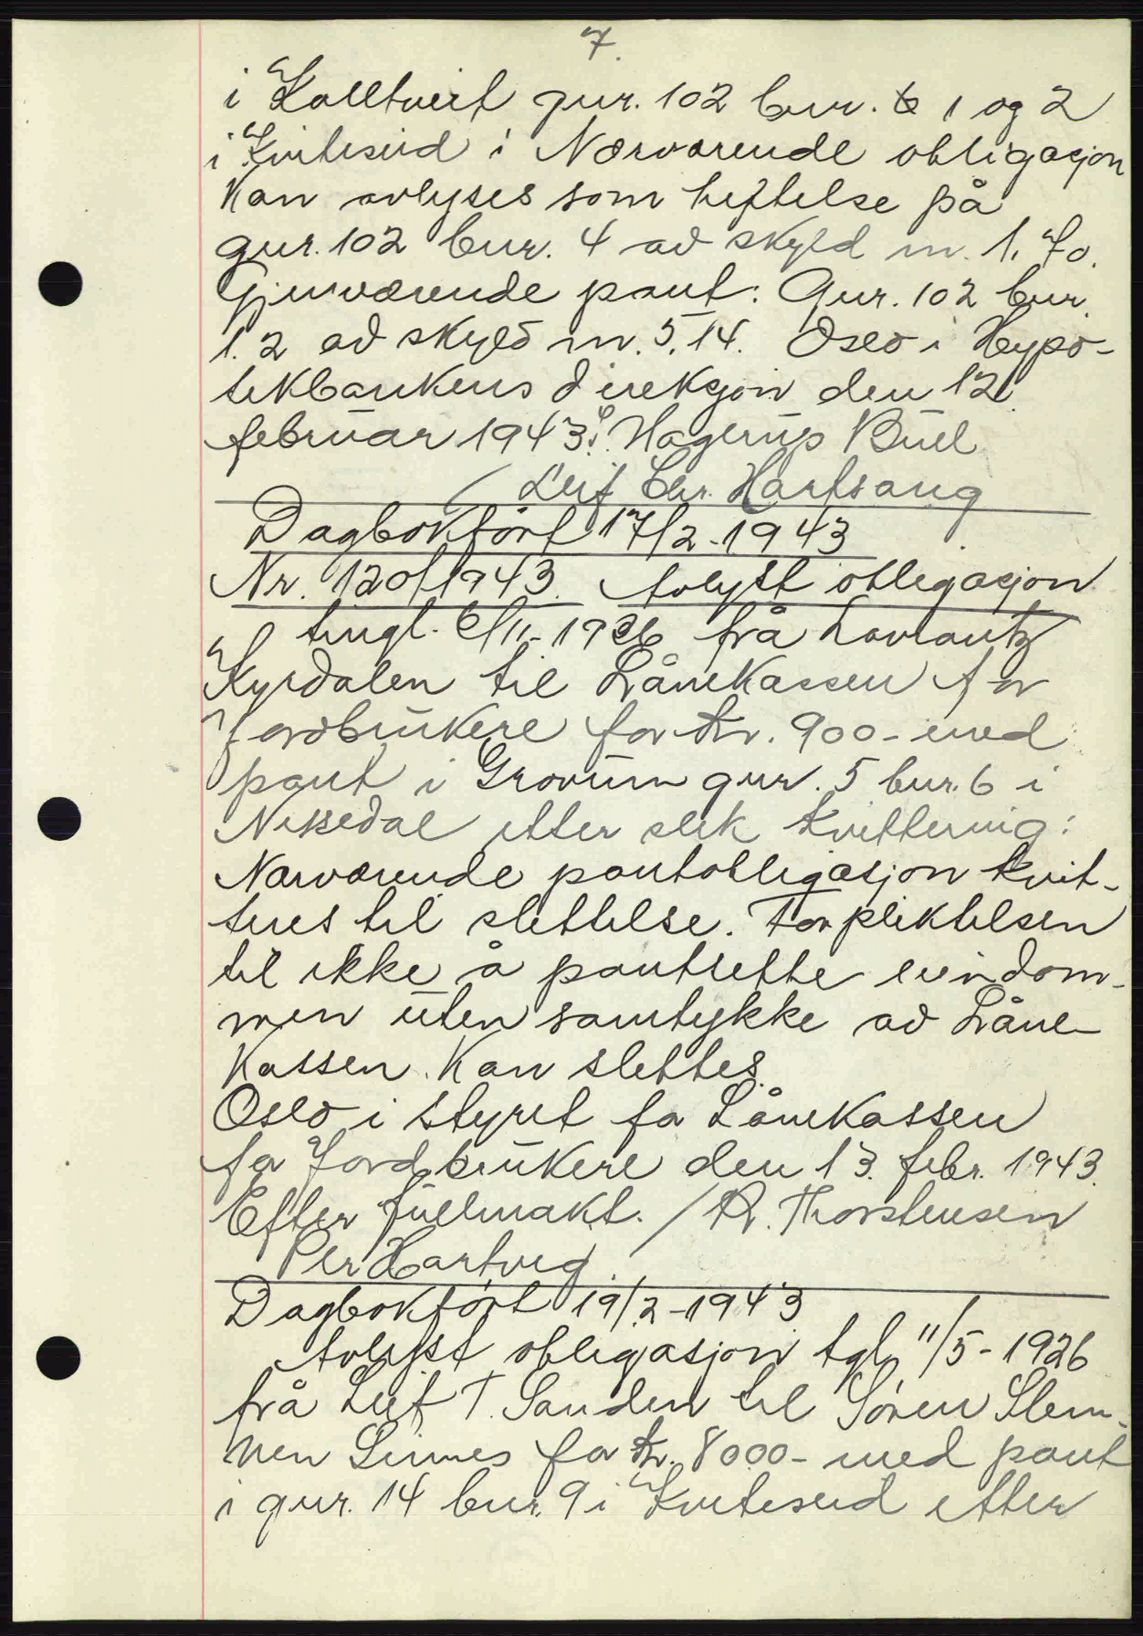 7.
i Kolltveit gnr. 102 bnr. 1 og 2
i Kviteseid i Nærværende obligasjon
kan avlyses som heftelse på
gnr. 102 bnr. 4 av skyld m. 1.70.
Gjenværende pant: Gnr. 102 bnr.
1.2 av skyld m. 5.14. Oslo i Hypo-
tekbankens direksjon den 12.
februar 1943. Hagerup Bull
/ Leif Chr. Hartsang
Dagbokført 17/2-1943
Nr. 120/1943. Avlyst obligasjon
tingl. 6/11-1926 frå Lavrantz
Kyrdalen til Lånekassen for
Jordbrukere for kr. 900- med
pant i Grovum gnr. 5 bnr. 6 i
Nissedal etter slik kvittering:
Nærværende pantobligasjon kvit-
teres til slettelse. Forpliktelsen
til ikke å pantsette eiendom-
men uten samtykke av Låne-
kassen. Kan slettes.
Oslo i styret for Lånekassen
for Jordbrukere den 13. febr. 1943.
Efter fullmakt. / Kr. Thorstensen
Per Hartvig
Dagbokført 19/2-1943
Avlyst obligasjon tgl. 11/5-1926
frå Leif T. Sanden til Søren Slem-
men Sinnes for kr. 8000- med pant
i gnr. 14 bnr. 9 i Kviteseid etter